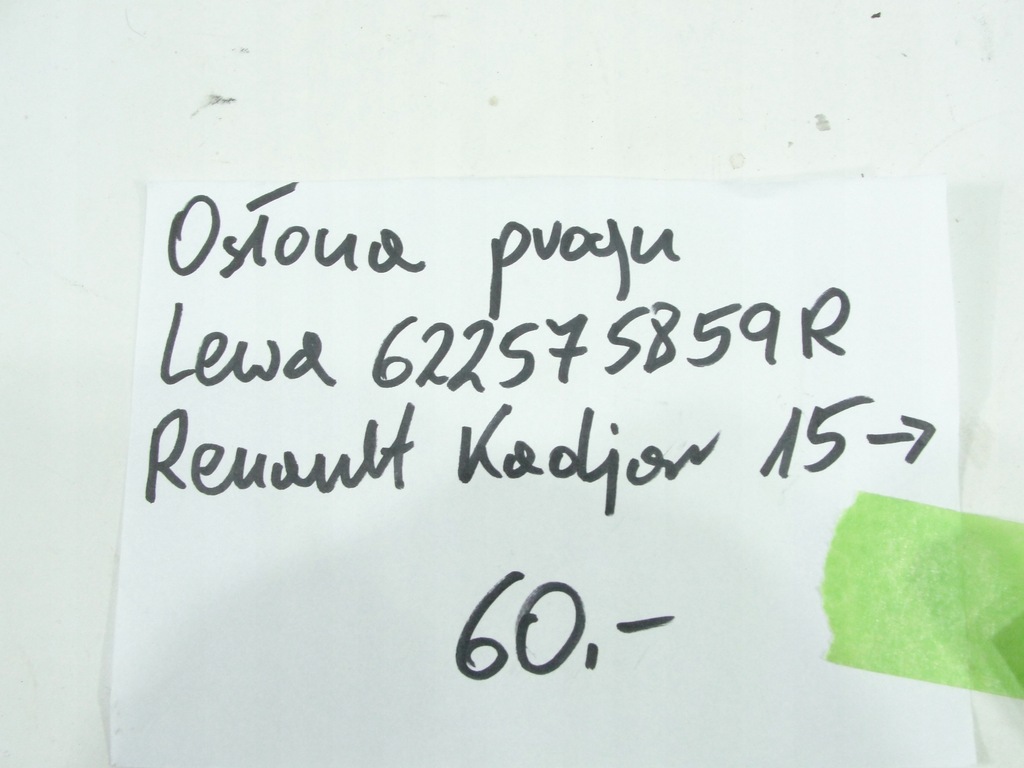 Osłona progu
Lewa 622575859R
Renault Kadjar 15->
60.-